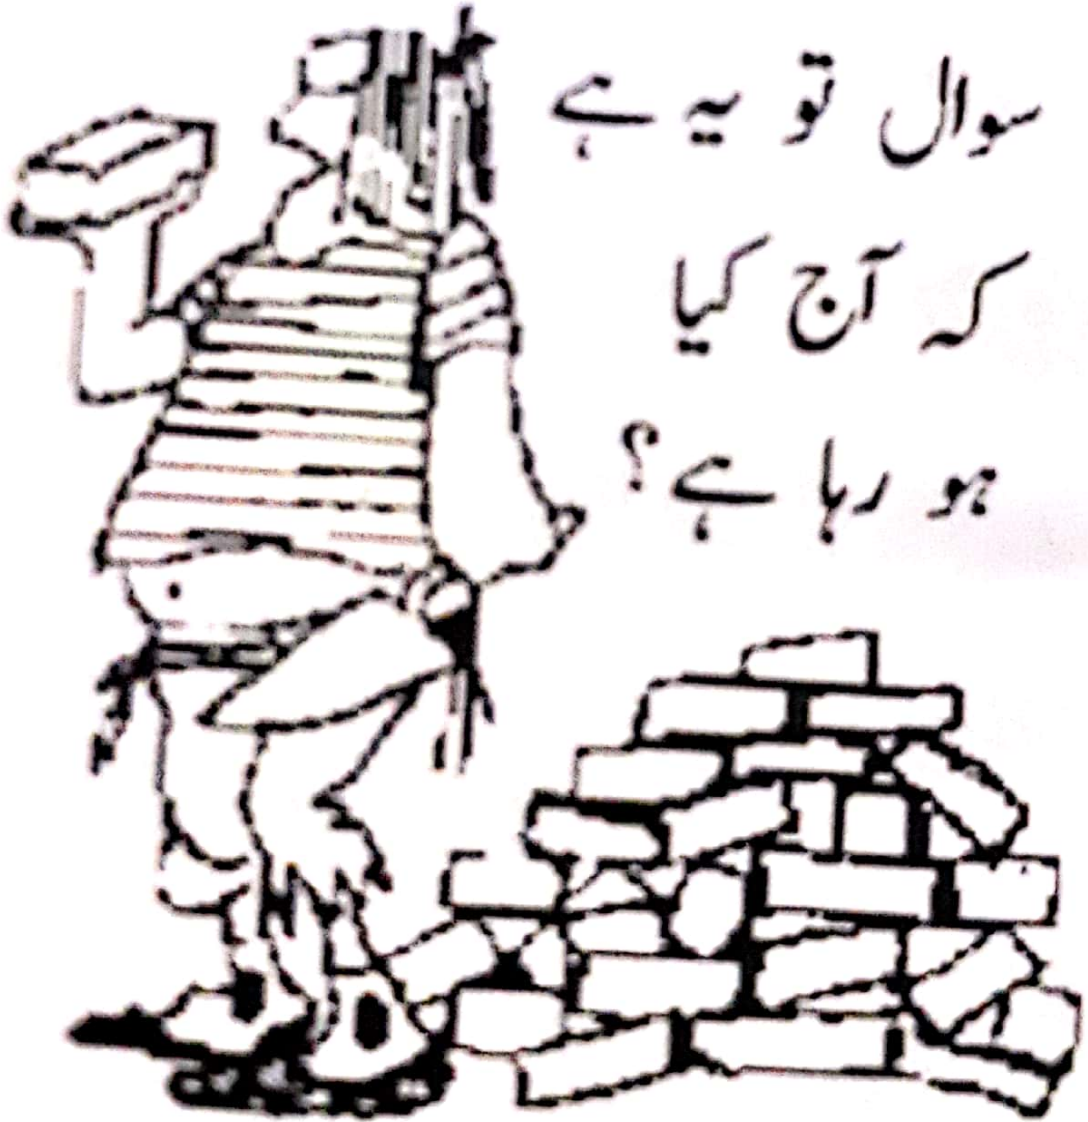 سوال تو یہ ہے
کہ آج کیا
ہو رہا ہے؟